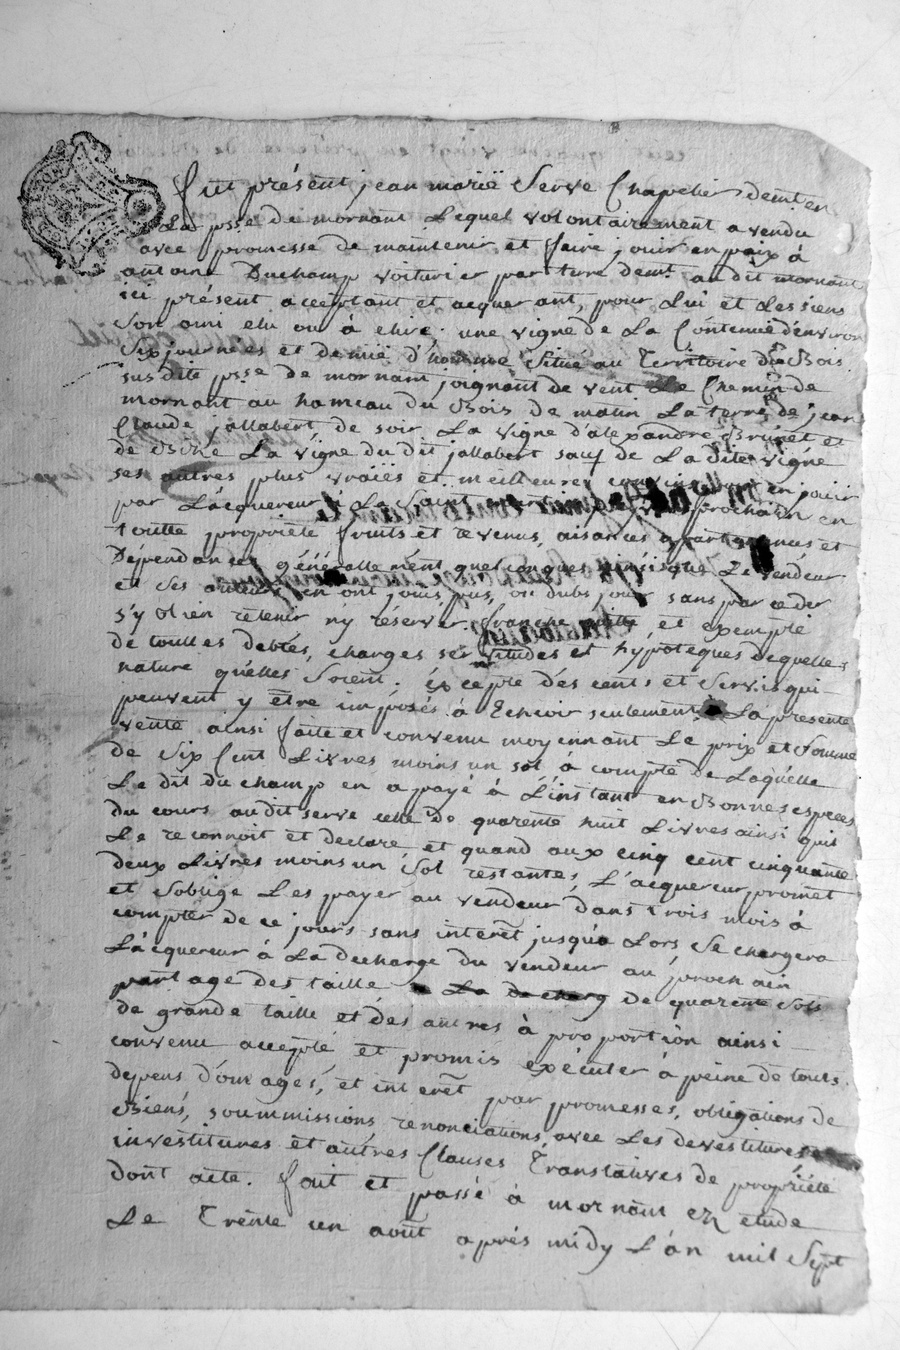 Fut présent jean marië Serve Chapelier demt. en
La psse de mornant Lequel volontairement a vendu
avec promesse de maintenir et faire jouir en paix à
antoine Duchamp voiturier par terre demt. au dit mornant
ici présent acceptant et acquerant, pour Lui et Les siens
Son ami elu ou à elire: une vigne de La Contenuë d'environ
Six journées et demië d'homme Situé au Territoire du Bois
susdite psse de mornant joignant de vent Le Chemin de
mornant au hameau du Bois de matin La terre de jean
Claude jallabert, de soir La vigne d'alexandre Brunet et
de Bize La vigne du dit jallabert sauf de La dite vigne
ses autres plus vraiës et meilleures en jouir
par L'acquereur à La Saint prochain en
toutte propriété fruits et revenus, aisances apartenances et
Dépendances généralement quelconques Le vendeur
et Ses auteurs en ont jouis, pus, ou dubs jouir sans par ceder
s'y olien retenir n'y réserver, franche quitte, et exempte
de touttes debtes, charges servitudes et hypoteques dequelles
nature qu'elles Soient. éxcepté des cents et Servis qui
peuvent y être imposés à Echoir seulement La présente
vente ainsi faitte et convenu moyennant Le prix et Somme
de Six Cent Livres moins un sol a compte de Laquelle
Le dit du champ en a payé à L'instant en Bonnes especes
du cours audit serve celle de quarente huit Livres ainsi quil
Le reconnoit et declare et quand aux cinq cent cinquante
deux Livres moins un Sol restantes, L'acquereur promet
et S'oblige Les payer au vendeur dans trois mois à
compter de ce jours sans interêt jusqu'a Lors Se chargera
L'acquereur à La decharge du vendeur au prochain
partage des taille La decharg de quarente Sols
de grande taille et des autres à proportion ainsi
convenu accepté et promis exécuter à peine de touts
depens domages, et interêt par promesses, obligations de
Biens, soummissions, renonciations, avec Les devestitures
investitures et autres Clauses Translatives de propriété
dont acte. fait et passé à mornant en étude
Le Trente un août après midy L'an mil Sept